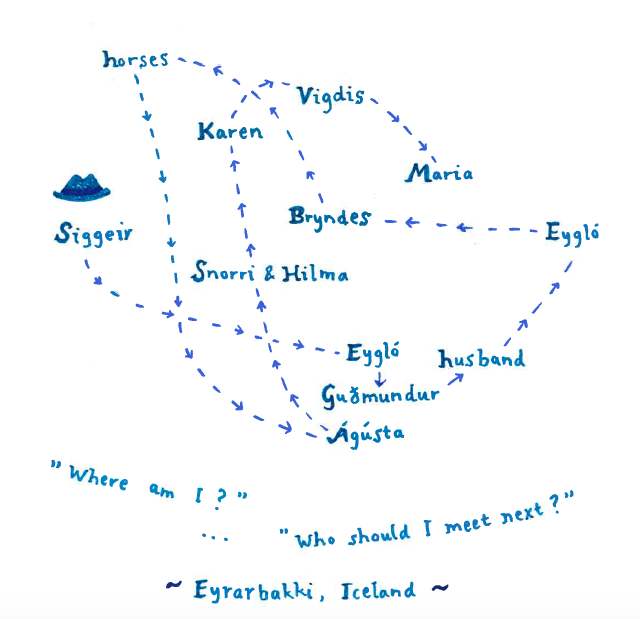 horses
Vigdis
Karen
Maria
Bryndes
Siggeir
Eygló
Snorri & Hilma
Eygló
husband
Guðmundur
Ágústa
"Where am I?"
...
"Who should I meet next?"
~ Eyrarbakki, Iceland ~